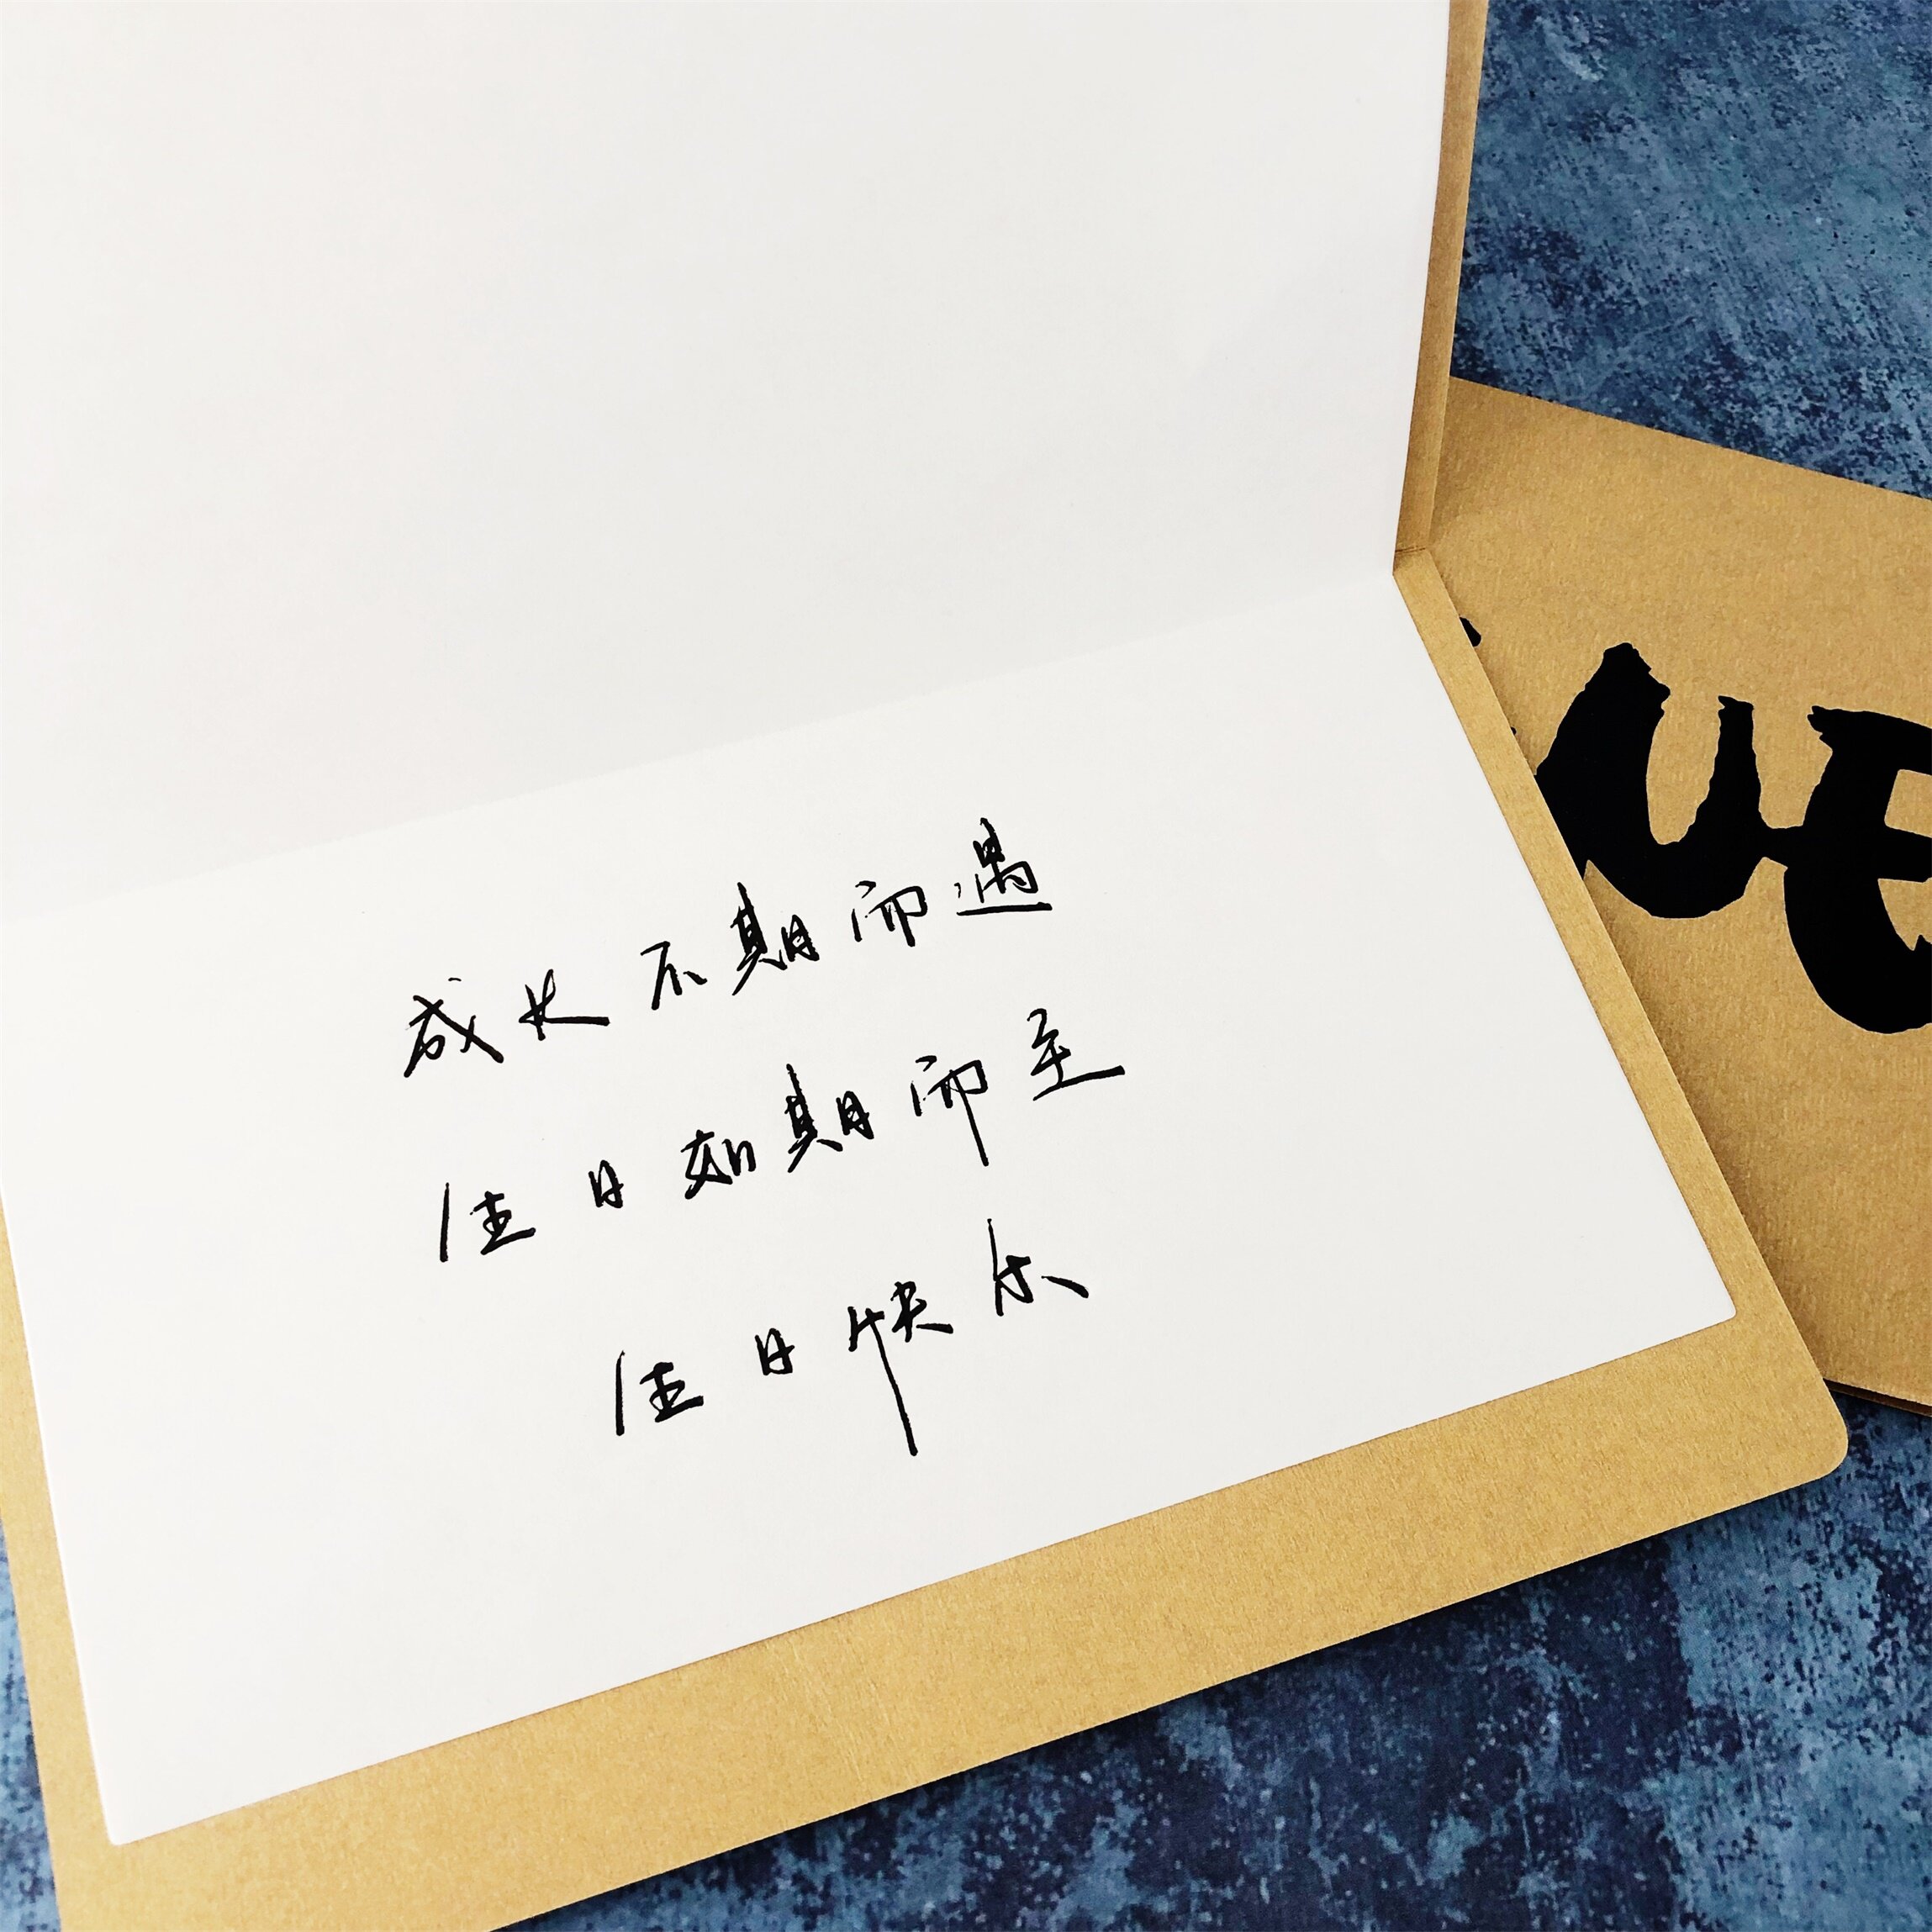 成长不期而遇
生日如期而至
生日快乐